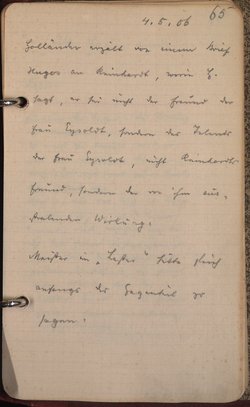 4.5.06 65
Holländer erzählt von einem Brief
Hugos an Reinhardt, worin H.
sagt, er sei nicht der Freund der
Frau Eysoldt, sondern des Talents
der Frau Eysoldt, nicht Reinhardts
Freund, sondern der von ihm aus-
strahlenden Wirkung.
Meister in „ “ hätte gleich
anfangs das Gegenteil zu
sagen.